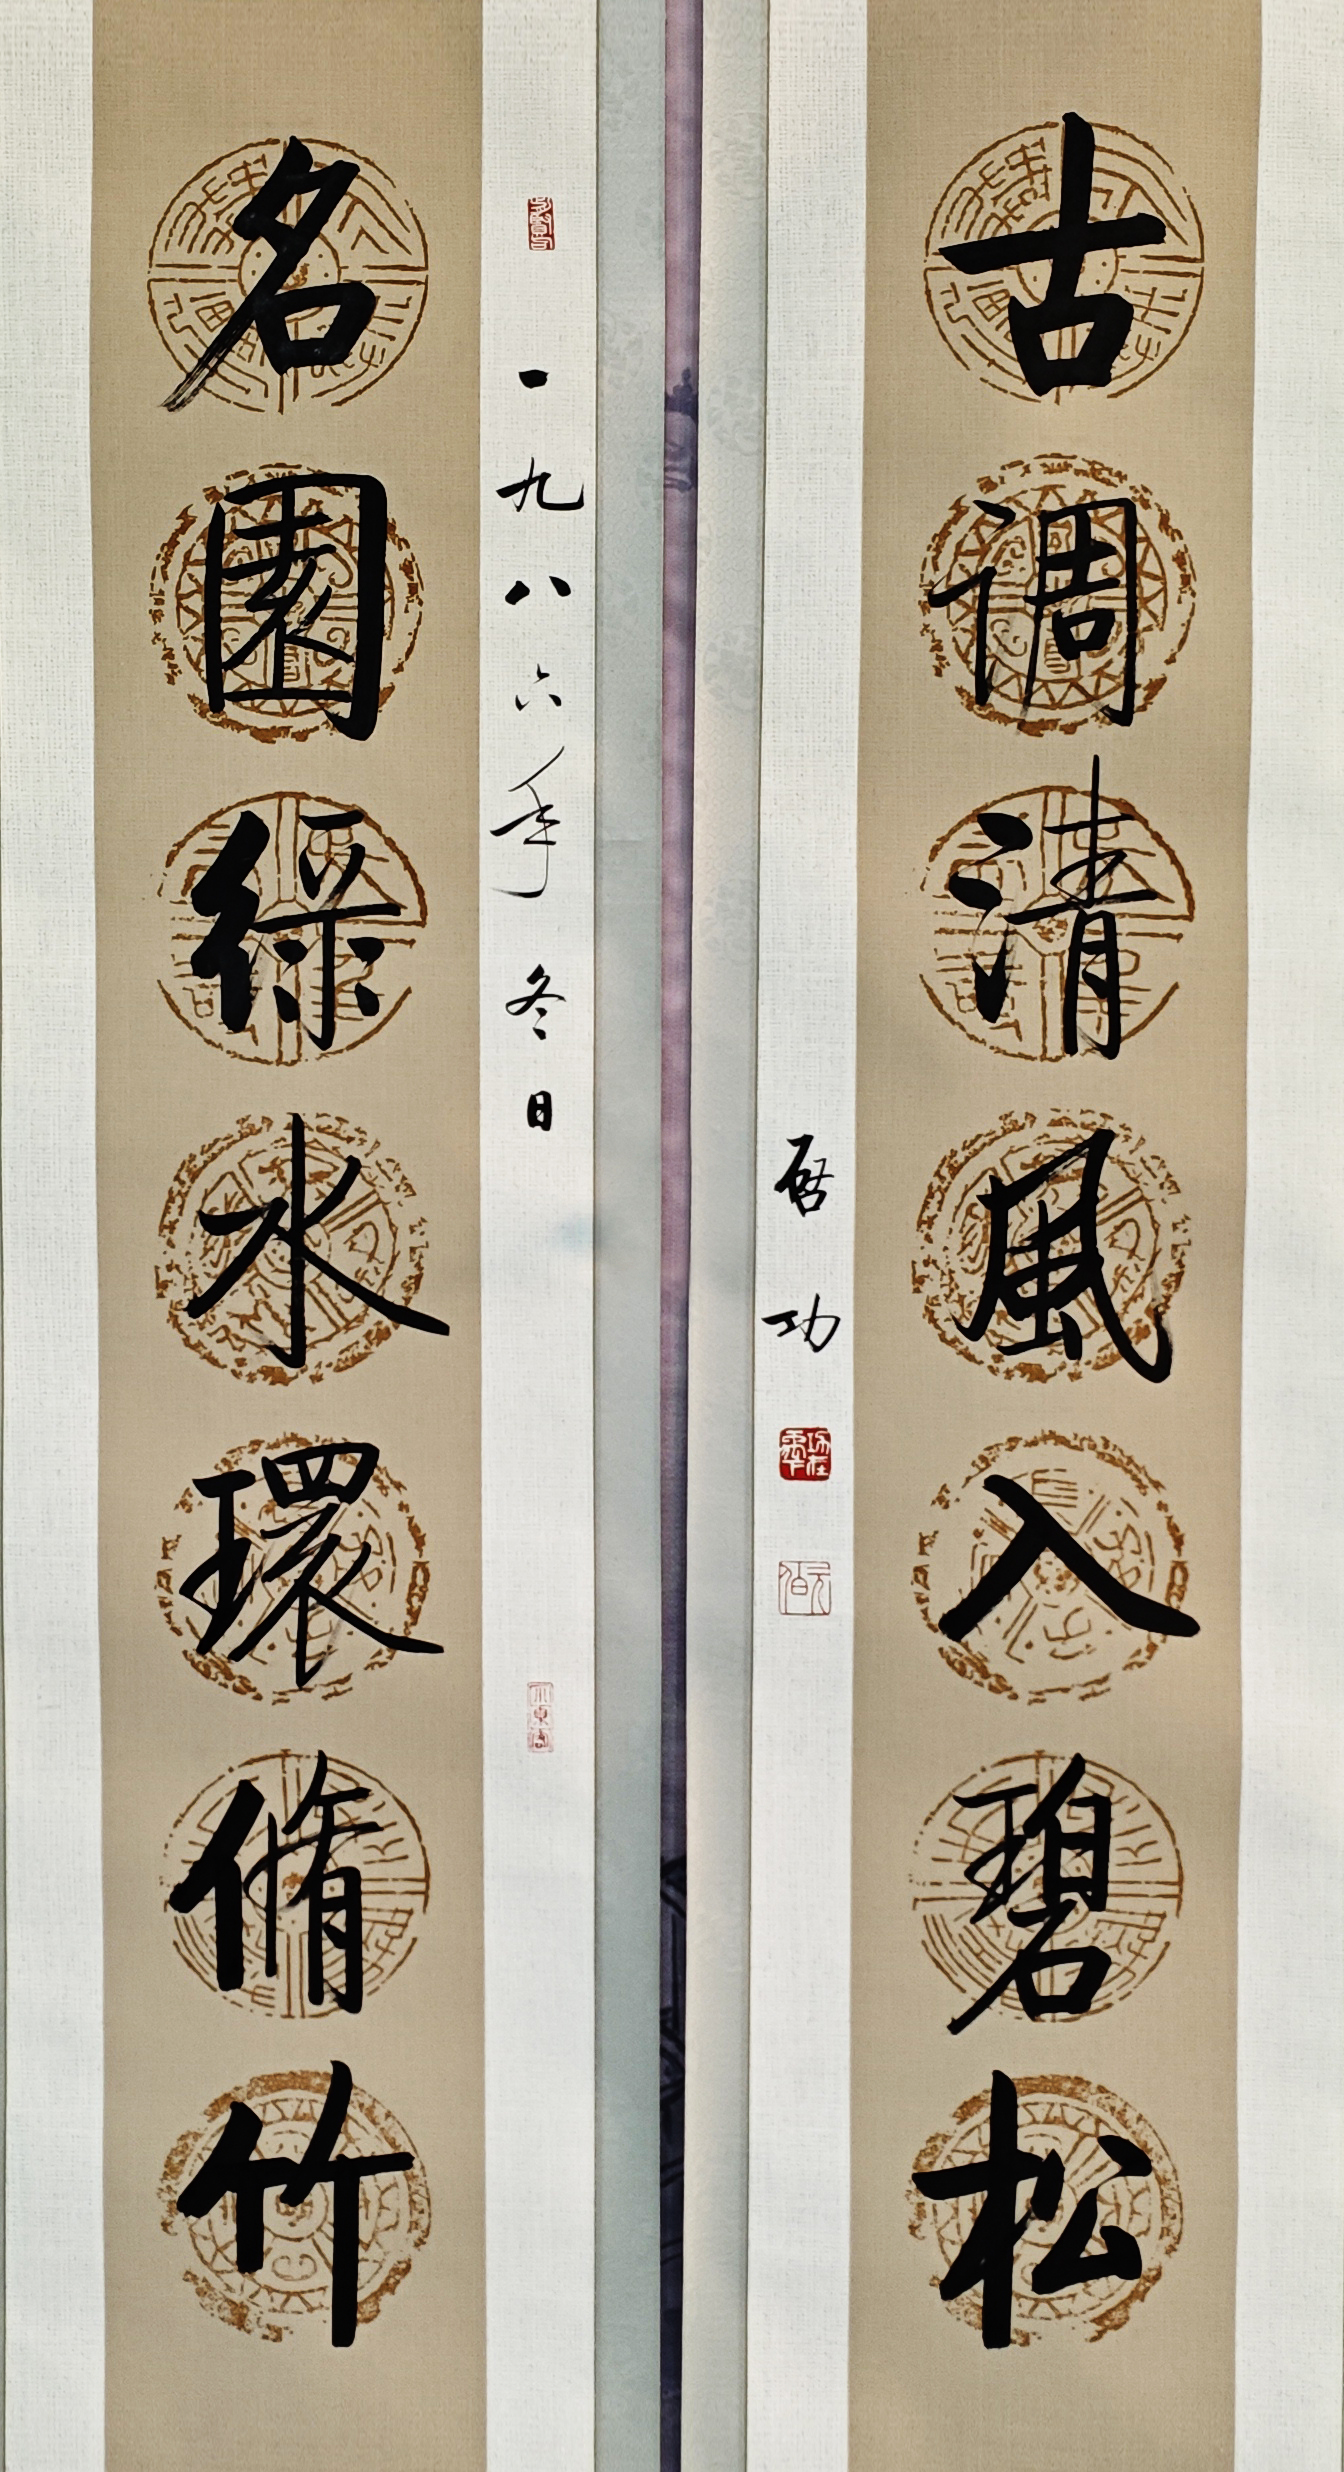 古调清風入碧松
启功
名園綠水環脩竹
一九八六年冬日